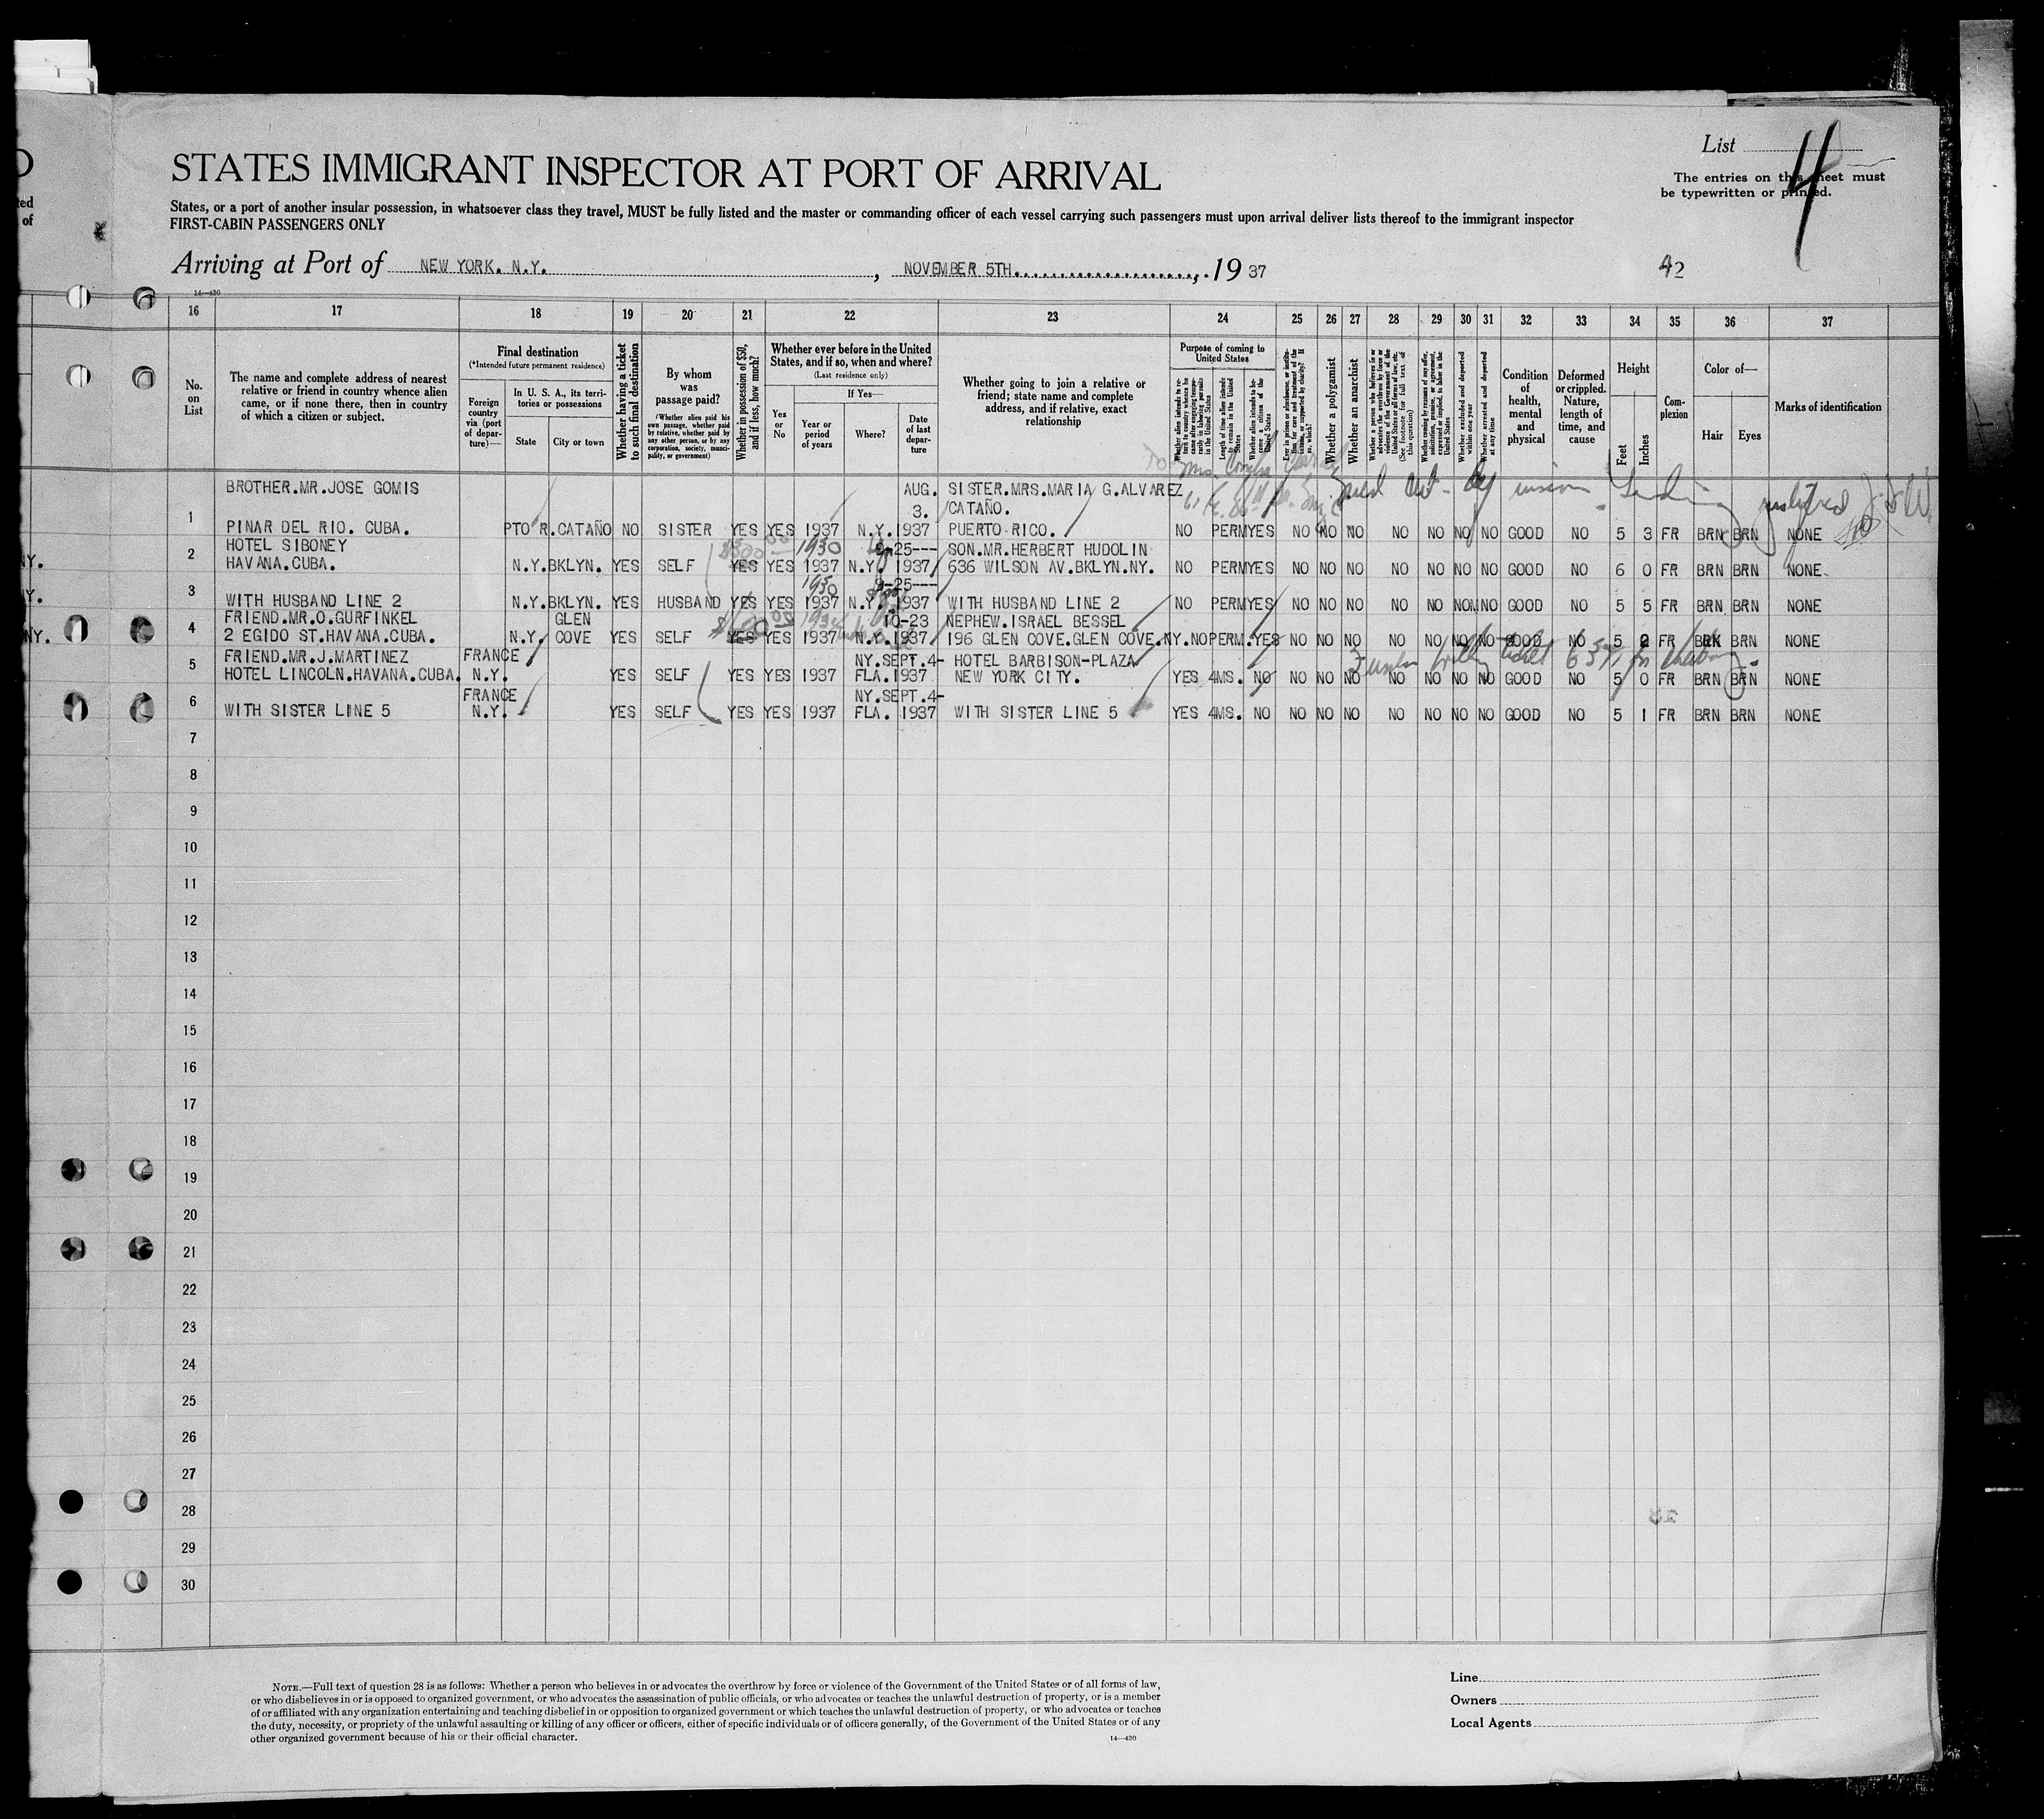 List 4
STATES IMMIGRANT INSPECTOR AT PORT OF ARRIVAL
The entries on this sheet must
be typewritten or printed.
States, or a port of another insular possession, in whatsoever class they travel, MUST be fully listed and the master or commanding officer of each vessel carrying such passengers must upon arrival deliver lists thereof to the immigrant inspector
FIRST-CABIN PASSENGERS ONLY
Arriving at Port of NEW YORK. N.Y. , NOVEMBER 5TH. , 19 37
42
14—430
16 17 18 19 20 21 22 23 24 25 26 27 28 29 30 31 32 33 34 35 36 37
No. on List
The name and complete address of nearest relative or friend in country whence alien came, or if none there, then in country of which a citizen or subject.
Final destination
(*Intended future permanent residence)
Foreign country via (port of departure)—
In U. S. A., its territories or possessions
State
City or town
Whether having a ticket to such final destination
By whom was passage paid?
(Whether alien paid his own passage, whether paid by relative, whether paid by any other person, or by any corporation, society, municipality, or government)
Whether in possession of $50, and if less, how much?
Whether ever before in the United States, and if so, when and where?
(Last residence only)
If Yes—
Yes or No
Year or period of years
Where?
Date of last departure
Whether going to join a relative or friend; state name and complete address, and if relative, exact relationship
Purpose of coming to United States
Whether alien intends to return to country whence he came after engaging temporarily in laboring pursuits in the United States
Length of time alien intends to remain in the United States
Whether alien intends to become a citizen of the United States
Whether a polygamist
Whether an anarchist
Whether a person who believes in or advocates the overthrow by force or violence of the Government of the United States or all forms of law, etc. (See footnote for full text of this question)
Whether coming by reason of any offer, solicitation, promise, or agreement, expressed or implied, to labor in the United States
Whether excluded and deported within one year
Whether arrested and deported at any time
Condition of health, mental and physical
Deformed or crippled. Nature, length of time, and cause
Height
Feet
Inches
Complexion
Color of—
Hair
Eyes
Marks of identification
BROTHER.MR.JOSE GOMIS AUG. SISTER.MRS.MARIA G.ALVAREZ
3. CATAÑO.
1 PINAR DEL RIO. CUBA. PTO R.CATAÑO NO SISTER YES YES 1937 N.Y. 1937 PUERTO RICO. NO PERM YES NO NO NO NO NO NO NO GOOD NO 5 3 FR BRN BRN NONE
HOTEL SIBONEY 1930 9-25--- SON.MR.HERBERT HUDOLIN
2 HAVANA.CUBA. N.Y. BKLYN. YES SELF YES YES 1937 N.Y. 1937 636 WILSON AV.BKLYN.NY. NO PERM YES NO NO NO NO NO NO NO GOOD NO 6 0 FR BRN BRN NONE
1930 9-25---
3 WITH HUSBAND LINE 2 N.Y. BKLYN. YES HUSBAND YES YES 1937 N.Y. 1937 WITH HUSBAND LINE 2 NO PERM YES NO NO NO NO NO NO NO GOOD NO 5 5 FR BRN BRN NONE
FRIEND.MR.O.GURFINKEL GLEN 10-23 NEPHEW.ISRAEL BESSEL
4 2 EGIDO ST.HAVANA.CUBA. N.Y. COVE YES SELF YES YES 1937 N.Y. 1937 196 GLEN COVE.GLEN COVE.NY. NO PERM. YES NO NO NO NO NO NO NO GOOD NO 5 2 FR BRK BRN NONE
FRIEND.MR.J.MARTINEZ FRANCE NY. SEPT.4- HOTEL BARBISON-PLAZA
5 HOTEL LINCOLN.HAVANA.CUBA. N.Y. YES SELF YES YES 1937 FLA. 1937 NEW YORK CITY. YES 4MS. NO NO NO NO NO NO NO NO GOOD NO 5 0 FR BRN BRN NONE
FRANCE NY. SEPT.4-
6 WITH SISTER LINE 5 N.Y. YES SELF YES YES 1937 FLA. 1937 WITH SISTER LINE 5 YES 4MS. NO NO NO NO NO NO NO NO GOOD NO 5 1 FR BRN BRN NONE
7
8
9
10
11
12
13
14
15
16
17
18
19
20
21
22
23
24
25
26
27
28
29
30
NOTE.—Full text of question 28 is as follows: Whether a person who believes in or advocates the overthrow by force or violence of the Government of the United States or of all forms of law,
or who disbelieves in or is opposed to organized government, or who advocates the assassination of public officials, or who advocates or teaches the unlawful destruction of property, or is a member
of or affiliated with any organization entertaining and teaching disbelief in or opposition to organized government or which teaches the unlawful destruction of property, or who advocates or teaches
the duty, necessity, or propriety of the unlawful assaulting or killing of any officer or officers, either of specific individuals or of officers generally, of the Government of the United States or of any
other organized government because of his or their official character.
14—430
Line
Owners
Local Agents